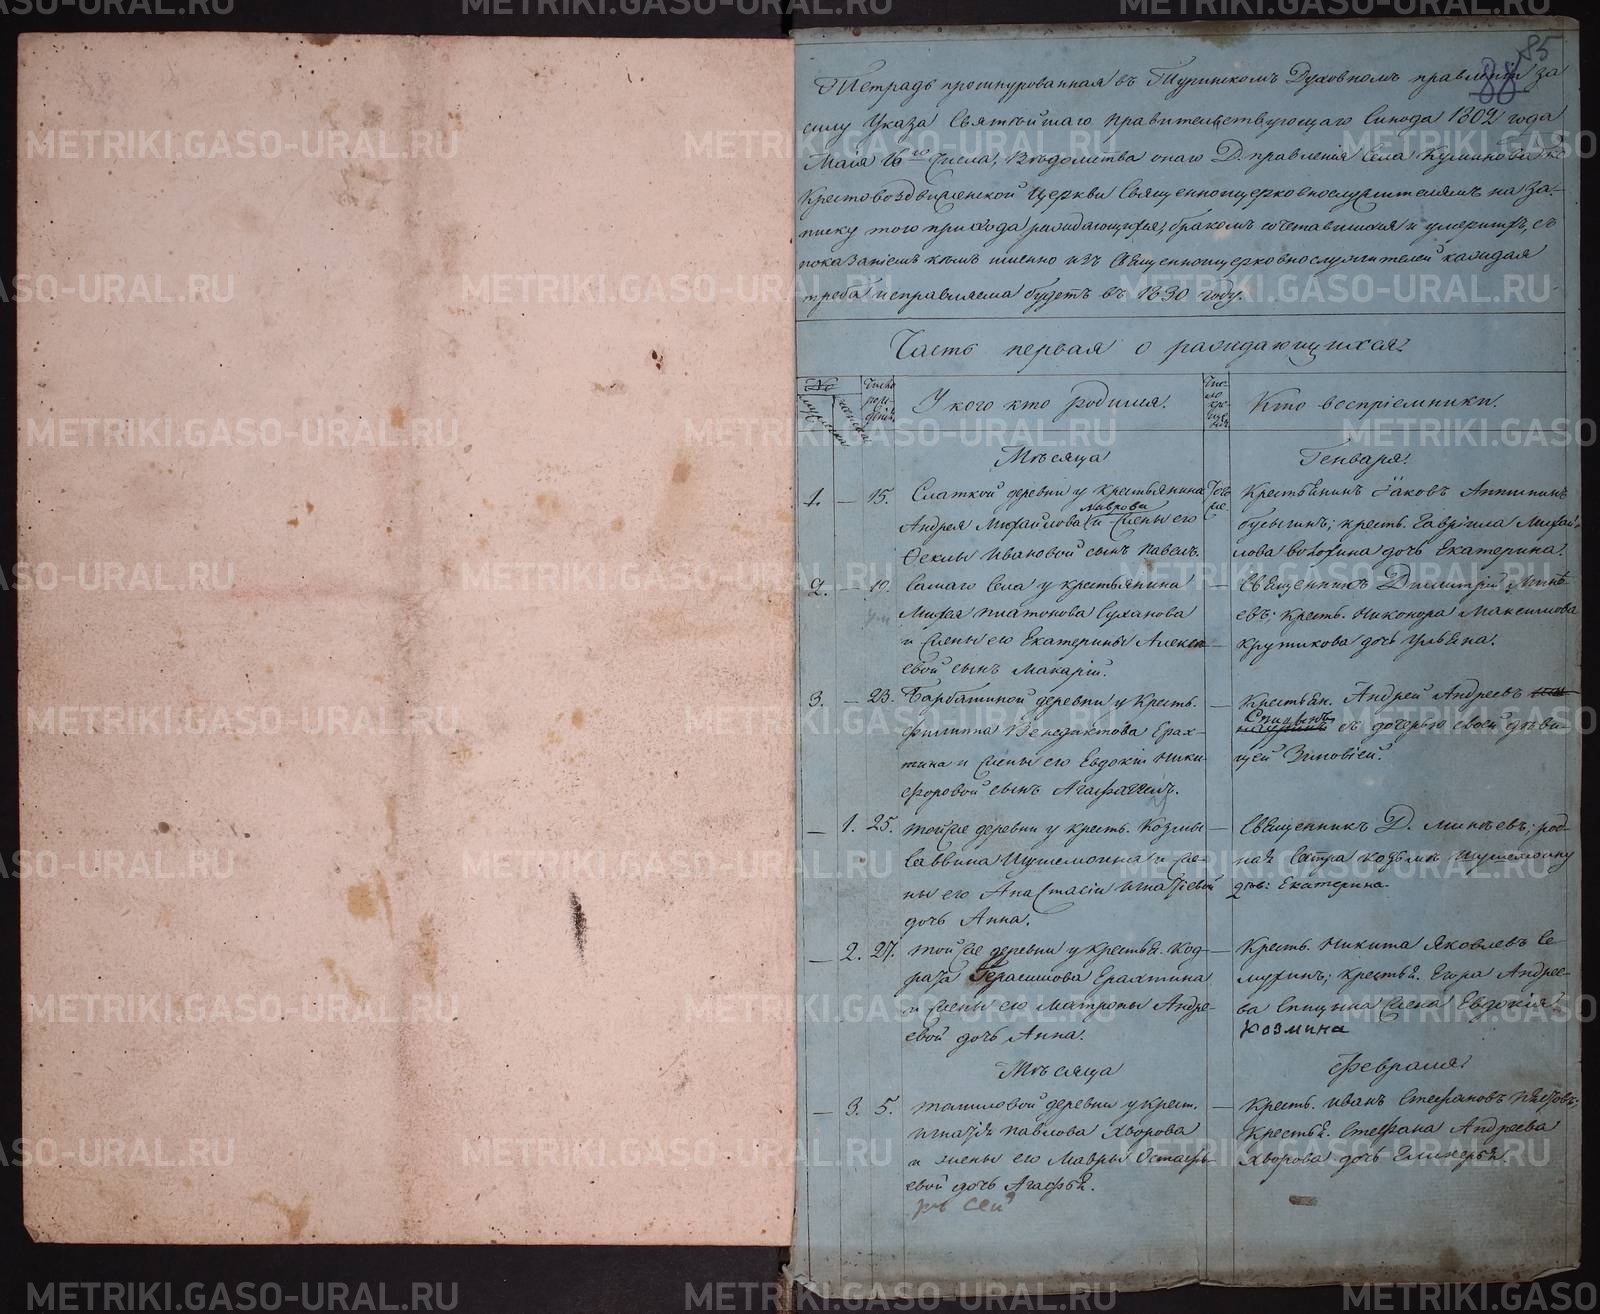 85
88
Тетрадь прошнурованная въ Туринскомъ Духовномъ правленіи за
силу Указа Святѣйшаго Правительствующаго Синода 1802 года
Маія 16го числа, Вѣдомства онаго Д. правленія Села Куминовскаго
Крестовоздвиженской Церкви Священноцерковнослужителямъ на за-
писку того прихода раждающихся, бракомъ сочетавшихся и умершихъ, съ
показаніемъ кѣмъ именно изъ Священноцерковнослужителей каждая
треба исправляема будетъ въ 1830 году.
Часть первая о раждающихся.
№ Число рожденія У кого кто родился. Число крещенія Кто воспріемники.
мужеска женска
Мѣсяца Генваря.
1. — 15. Слаткой деревни у крестьянина
Андрея Михайлова Лаврова и жены его
Феклы Ивановой сынъ Павелъ.
Крестьянинъ Іаковъ
крестъ. Гавріила Михай-
лова дочь Екатерина.
2. — 19. Самаго Села у крестьянина —
Платонова Суханова
и жены его Екатерины Алексѣ-
евой сынъ Макарій.
Священникъ Димитрій Минѣ-
евъ; крестъ. Никонора Максимова
Крутикова дочь Ульяна.
3. — 23. Барбашиной деревни у крестъ. —
Филиппа Венедиктова Ерах-
тина и жены его Евдокіи Ники-
форовой сынъ
Крестьян. Андрей Андреевъ
Спицынъ съ дочерью своей дѣви-
цей Зиновіей.
— 1. 25. той же деревни у крестъ. Козмы —
Саввина и же-
ны его Анастасіи Игнатіевой
дочь Анна.
Священникъ Д. Минѣевъ; род-
ная сестра
дѣв: Екатерина.
— 2. 27. той же деревни у крестья. Код-
рата Герасимова Ерахтина
и жены его Матроны Андре-
евой дочь Анна.
Крестъ. Никита Яковлевъ Се-
мухинъ; крестья. Егора Андрее-
ва Спицына жена Евдокія
Козмина
Мѣсяца Февраля.
— 3. 5. Томиловой деревни у крест. —
Игнатія Павлова Хворова
и жены его Мавры Остафь-
евой дочь Агафья.
Крестъ. Иванъ Стефановъ
Крестья. Стефана Андреева
Хворова дочь Гликерья.
METRIKI.GASO-URAL.RU